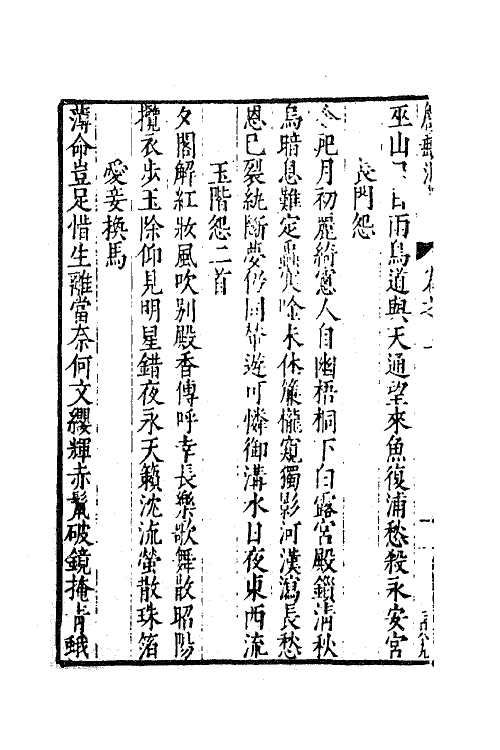 巫山雨鳥道與天通望來魚復浦愁殺永安宮
長門怨
月初麗綺窓人自幽梧桐下白露宮殿鎖清秋
烏暗息難定蟲寒唫未休簾櫳窺獨影河漢瀉長愁
恩已裂紈斷夢仍同輦遊可憐御溝水日夜東西流
玉階怨二首
夕閣解紅妝風吹別殿香傳呼幸長樂歌舞散昭陽
攬衣步玉除仰見明星錯夜永天籟沈流螢散珠箔
愛妾換馬
薄命豈足惜生離當奈何文纓輝赤鬣破鏡掩青蛾